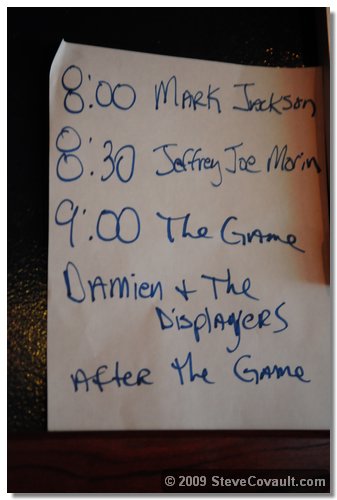 8:00 Mark Jackson
8:30 Jeffrey Joe Morin
9:00 The Game
Damien + The
Displayers
After The Game
© 2009 SteveCovault.com